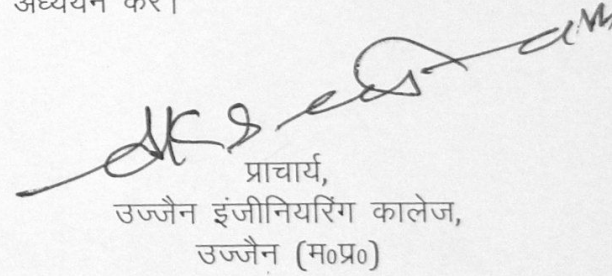 अध्ययन करें।
प्राचार्य,
उज्जैन इंजीनियरिंग कालेज,
उज्जैन (म०प्र०)